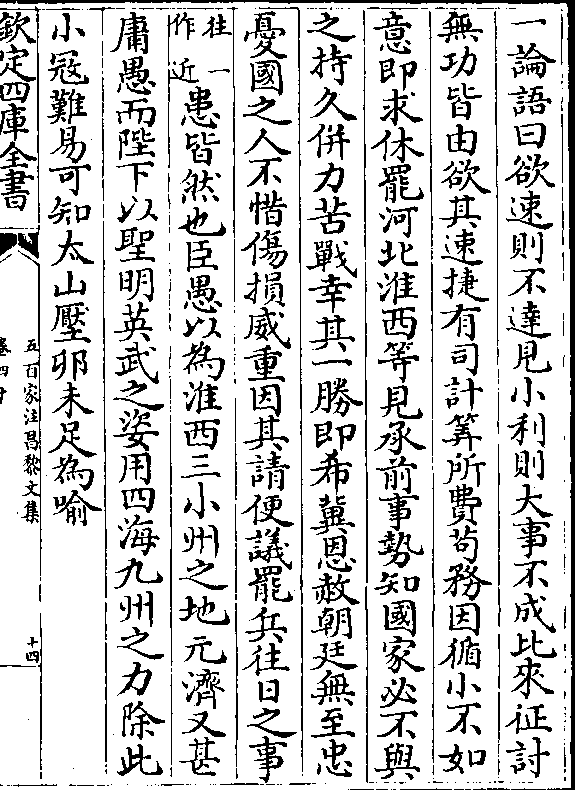 一論語曰欲速則不達見小利則大事不成比來征討
無功皆由欲其速捷有司計筭所費苟務因循小不如
意即求休罷河北淮西等見承前事勢知國家必不與
之持久併力苦戰幸其一勝即希冀恩赦朝廷無至忠
憂國之人不惜傷損威重因其請便議罷兵往日之事
往一
作近
患皆然也臣愚以為淮西三小州之地元濟又甚
庸愚而陛下以聖明英武之姿用四海九州之力除此
小冦難易可知太山壓卵未足為喻
欽定四庫全書
五百家注昌黎文集
卷四十
十四